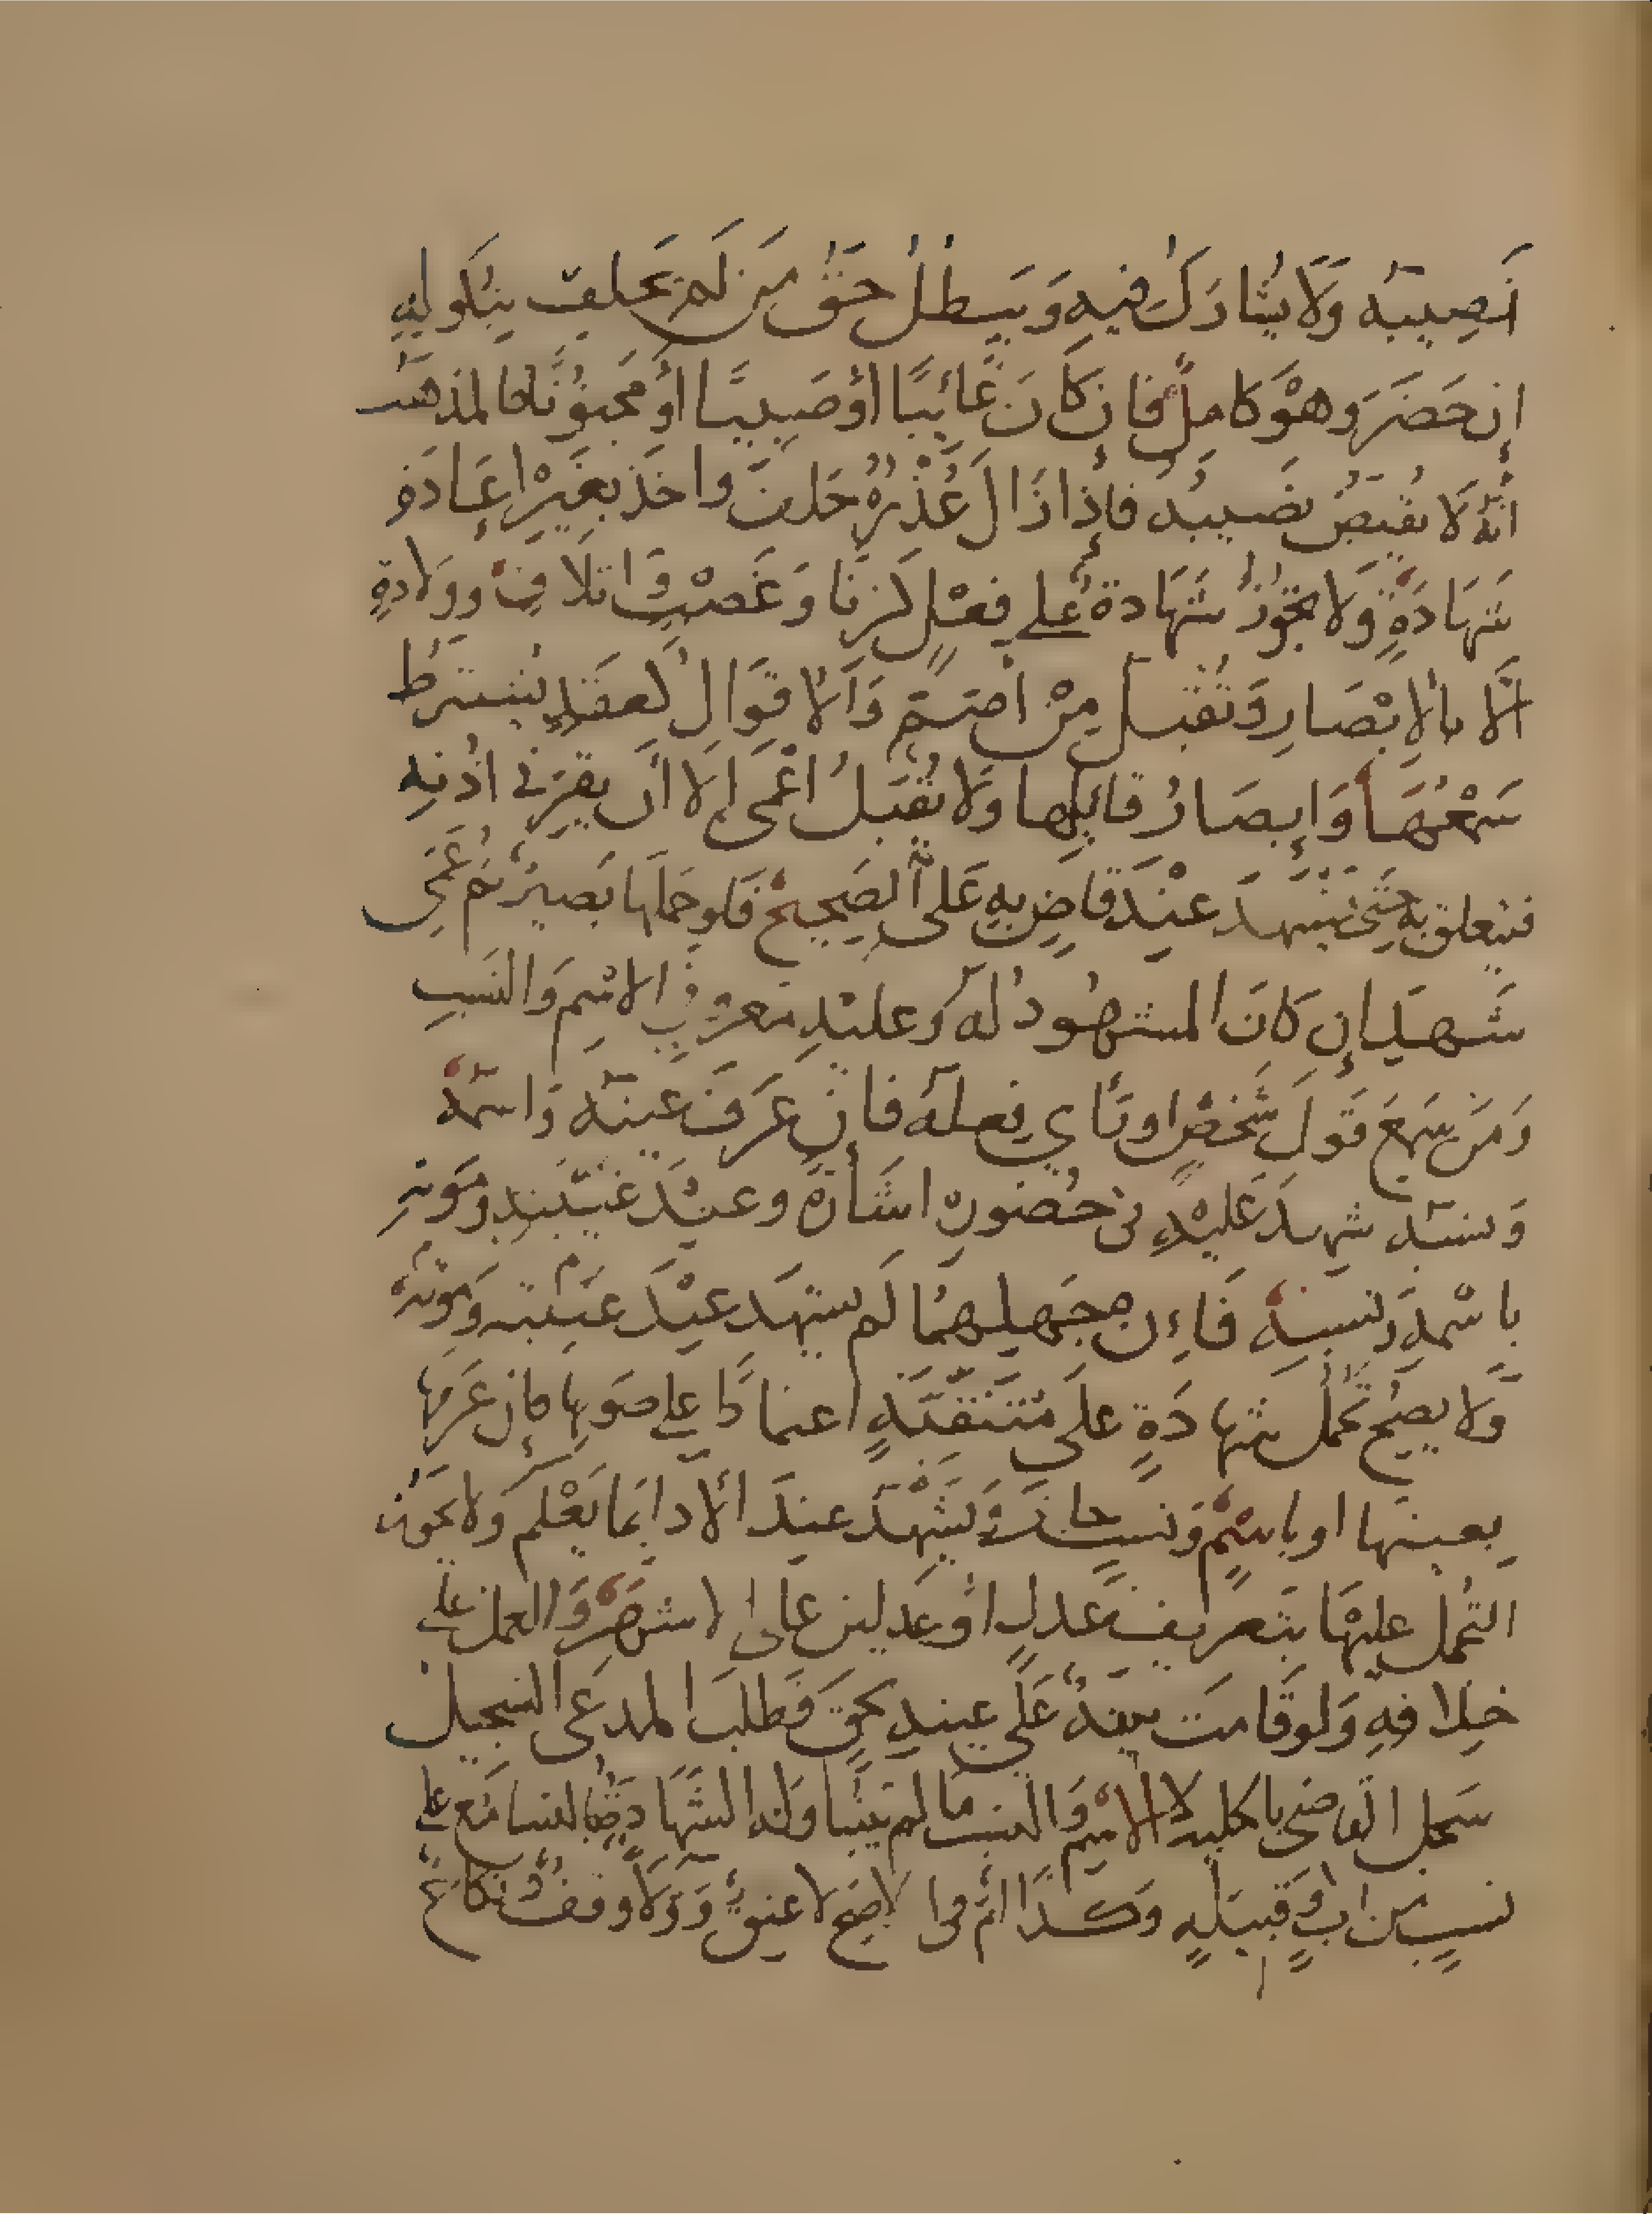 نَصِيبَه وَلَا يُشَارَكُ فِيهِ وَيَبْطُلُ حَقُّ مَن لَم يَحلِف بِنُكولِهِ
إن حَضَرَ وهُوَ كامِلٌ فإن كَانَ غَائِبًا أوْ صَبِيًّا أوْ مَجنُونًا فالمذهَبُ
أنّهُ لَا يُقبَضُ نَصيبُهُ فإذا زَالَ عُذْرُهُ حَلَفَ واخَذ بغَيْرِ إعَادَةِ
شَهَادَةٍ وَلا تَجُوزُ شَهَادة عَلى فِعْلٍ كَزِنًا وَغَصْبٍ وَاتلافٍ وَوِلادةٍ
الَّا بالإبْصَارِ وَتُقْبَلُ مِنْ أصَمَّ وَالاقوَالُ كعَقدٍ يُشتَرَطُ
سَمْعُهَا وَإبصَارُ قَائِلِها ولا يُقبَلُ اعْمَى إلا أن يقِرَّ في اذُنِهِ
فيتعلق به حَتّى يَشهدَ عِنْدَ قاضٍ بِهِ عَلى الصَحِيحِ فَلو حَمَلَها بَصيرٌ ثم عَمِىَ
شَهِدَ إن كَانَ المشهُودُ له وَعليْهِ مَعرُوفِي الاسْمِ وَالنَسَبِ
وَمَن سَمِعَ قَولَ شَخصٍ او رَأي فِعلَهُ فإن عَرَفَ عينَه وَاسمَهُ
وَنسَبَه شهدَ عَليْهِ فى حُضُورِه اشَارَةً وعِنْدَ غَيبَتِهِ وَمَوتِهِ
باسْمِهِ وَنسَبِهِ فَاءِن جَهِلهمَا لَم يشهَد عِنْدَ غَيبته وَمَوتِهِ
وَلا يصِحُ تحمُّل شهادَةٍ عَلَى مُتَنَقِّبَةٍ اعتمادًا على صَوتِها فإن عَرَفها
بعينهَا او باسْمٍ وَنسَبٍ جازَ وَيَشْهَدُ عِندَ الأدا بمَا يَعْلمُ ولا يَجُوز
التحمل عليْهَا بتَعريف عَدلٍ أو عَدلين عَلى الاشهَرِ وَالعمل على
خِلافِهِ وَلو قَامَت بيّنَةٌ عَلَى عينِهِ بحَقٍ فَطلَبَ المدعى التسجِيلَ
سَجل القاضى بالحلية لا الاسمِ وَالنسب مَا لم يَثبتا وَلَه الشَهَادَةُ بالتسامُع على
نسبٍ من ابٍ وَقبيلَةٍ وَكذا أمٌ في الاصَح لا عِتقٌ وَوَلاءٌ وَوقفٌ وَنكاحٌ